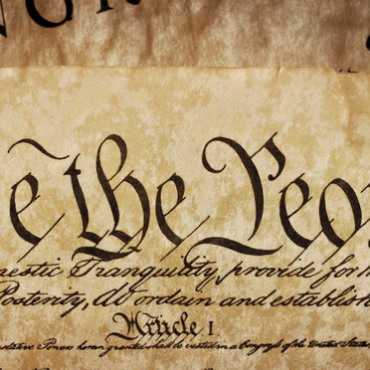 e the Peo
mestic Tranquility, provide for
Posterity, do ordain and establish
Article I.
Powers herein granted shall be vested in a Congress of the United States